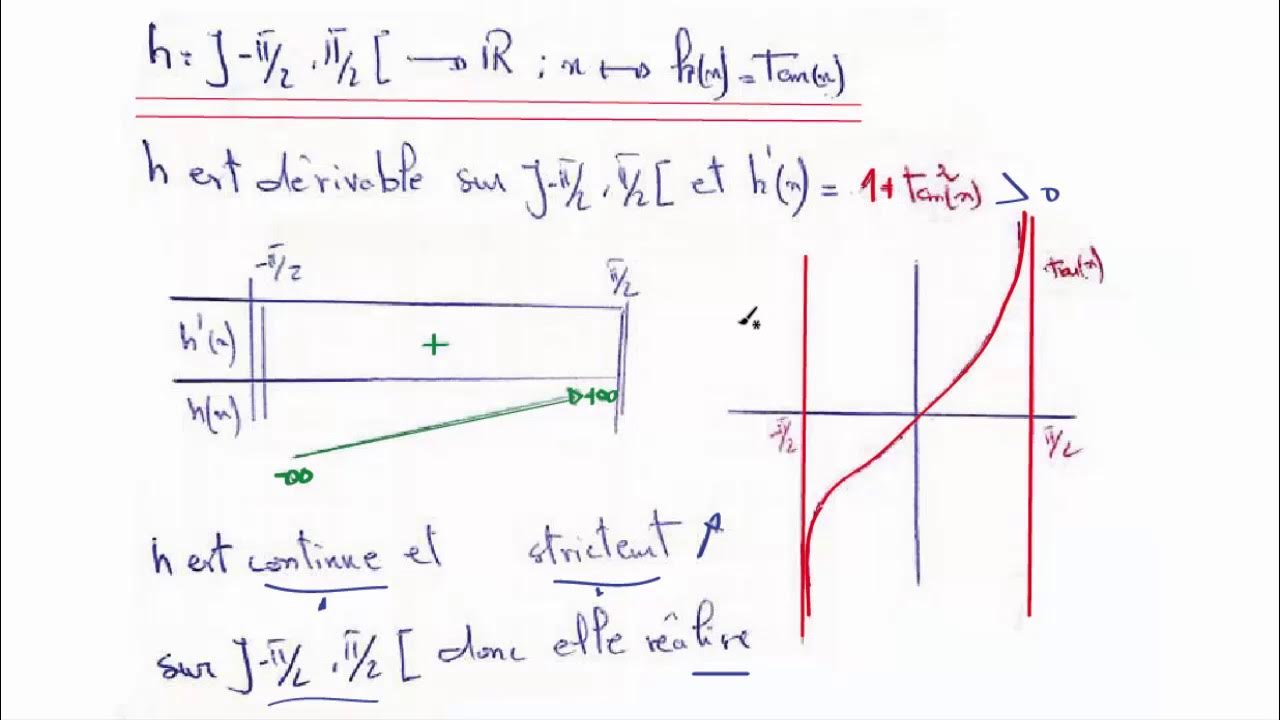 h: ]-π/2 , π/2 [ → ℝ ; x ↦ h(x) = Tan(x)
h est dérivable sur ]-π/2 , π/2 [ et h'(x) = 1 + Tan²(x) > 0
-π/2 π/2
h'(x) +
h(x) -∞ +∞
tan(x)
-π/2 π/2
h est continue et strictemt ↗
sur ]-π/2 , π/2 [ donc elle réâlise